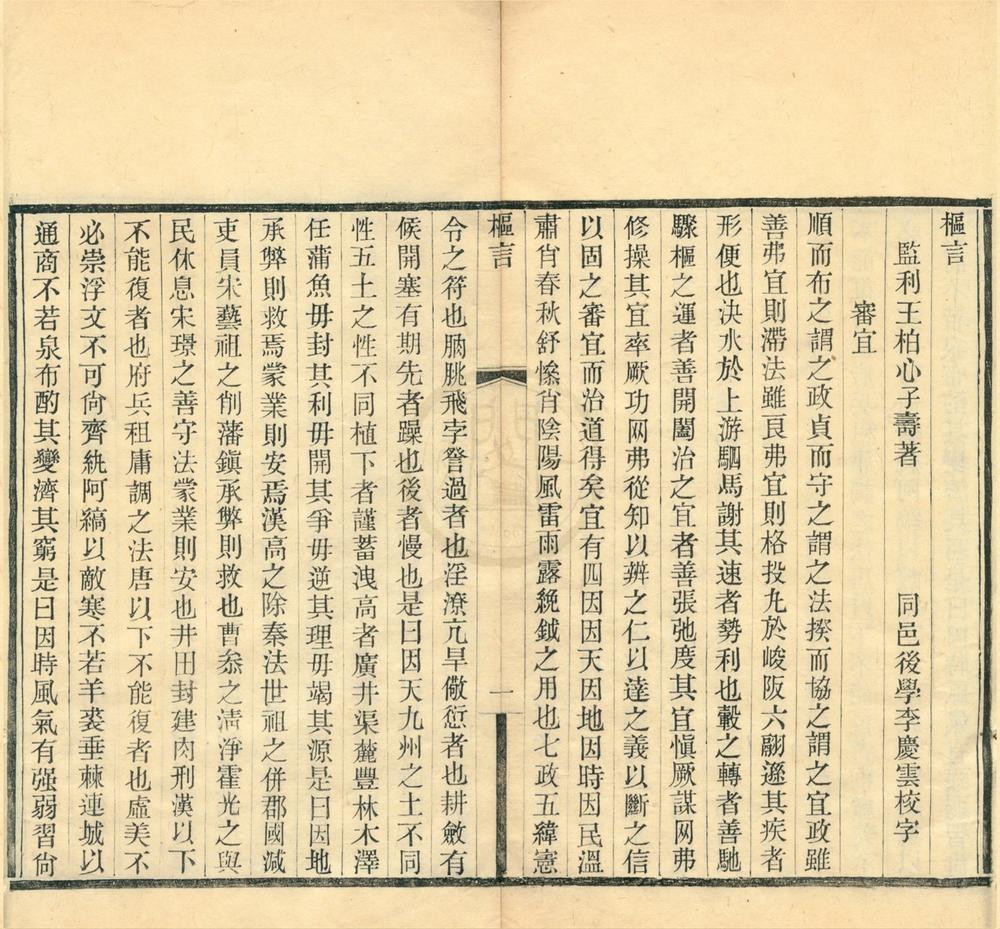 樞言
監利王柏心子壽著 同邑後學李慶雲校字
審宜
順而布之謂之政貞而守之謂之法揆而協之謂之宜政雖
善弗宜則滯法雖良弗宜則格投丸於峻阪六翮遜其疾者
形便也決水於上游駟馬謝其速者勢利也轂之轉者善馳
驟樞之運者善開闔治之宜者善張弛度其宜愼厥謀网弗
修操其宜率厥功网弗從知以辨之仁以達之義以斷之信
以固之審宜而治道得矣宜有四因因天因地因時因民溫
肅肖春秋舒慘肖陰陽風雷雨露絻鉞之用也七政五緯憲
樞言
一
令之符也朒脁飛孛詧過者也淫潦亢旱儆愆者也耕斂有
候開塞有期先者躁也後者慢也是曰因天九州之土不同
性五土之性不同植下者謹蓄洩高者廣井渠麓豐林木澤
任蒲魚毋封其利毋開其爭毋逆其理毋竭其源是曰因地
承弊則救焉蒙業則安焉漢高之除秦法世祖之併郡國減
吏員宋藝祖之削藩鎭承弊則救也曹叅之淸淨霍光之與
民休息宋璟之善守法蒙業則安也井田封建肉刑漢以下
不能復者也府兵租庸調之法唐以下不能復者也虛美不
必崇浮文不可尙齊紈阿縞以敵寒不若羊裘垂棘連城以
通商不若泉布酌其變濟其窮是曰因時風氣有强弱習尙